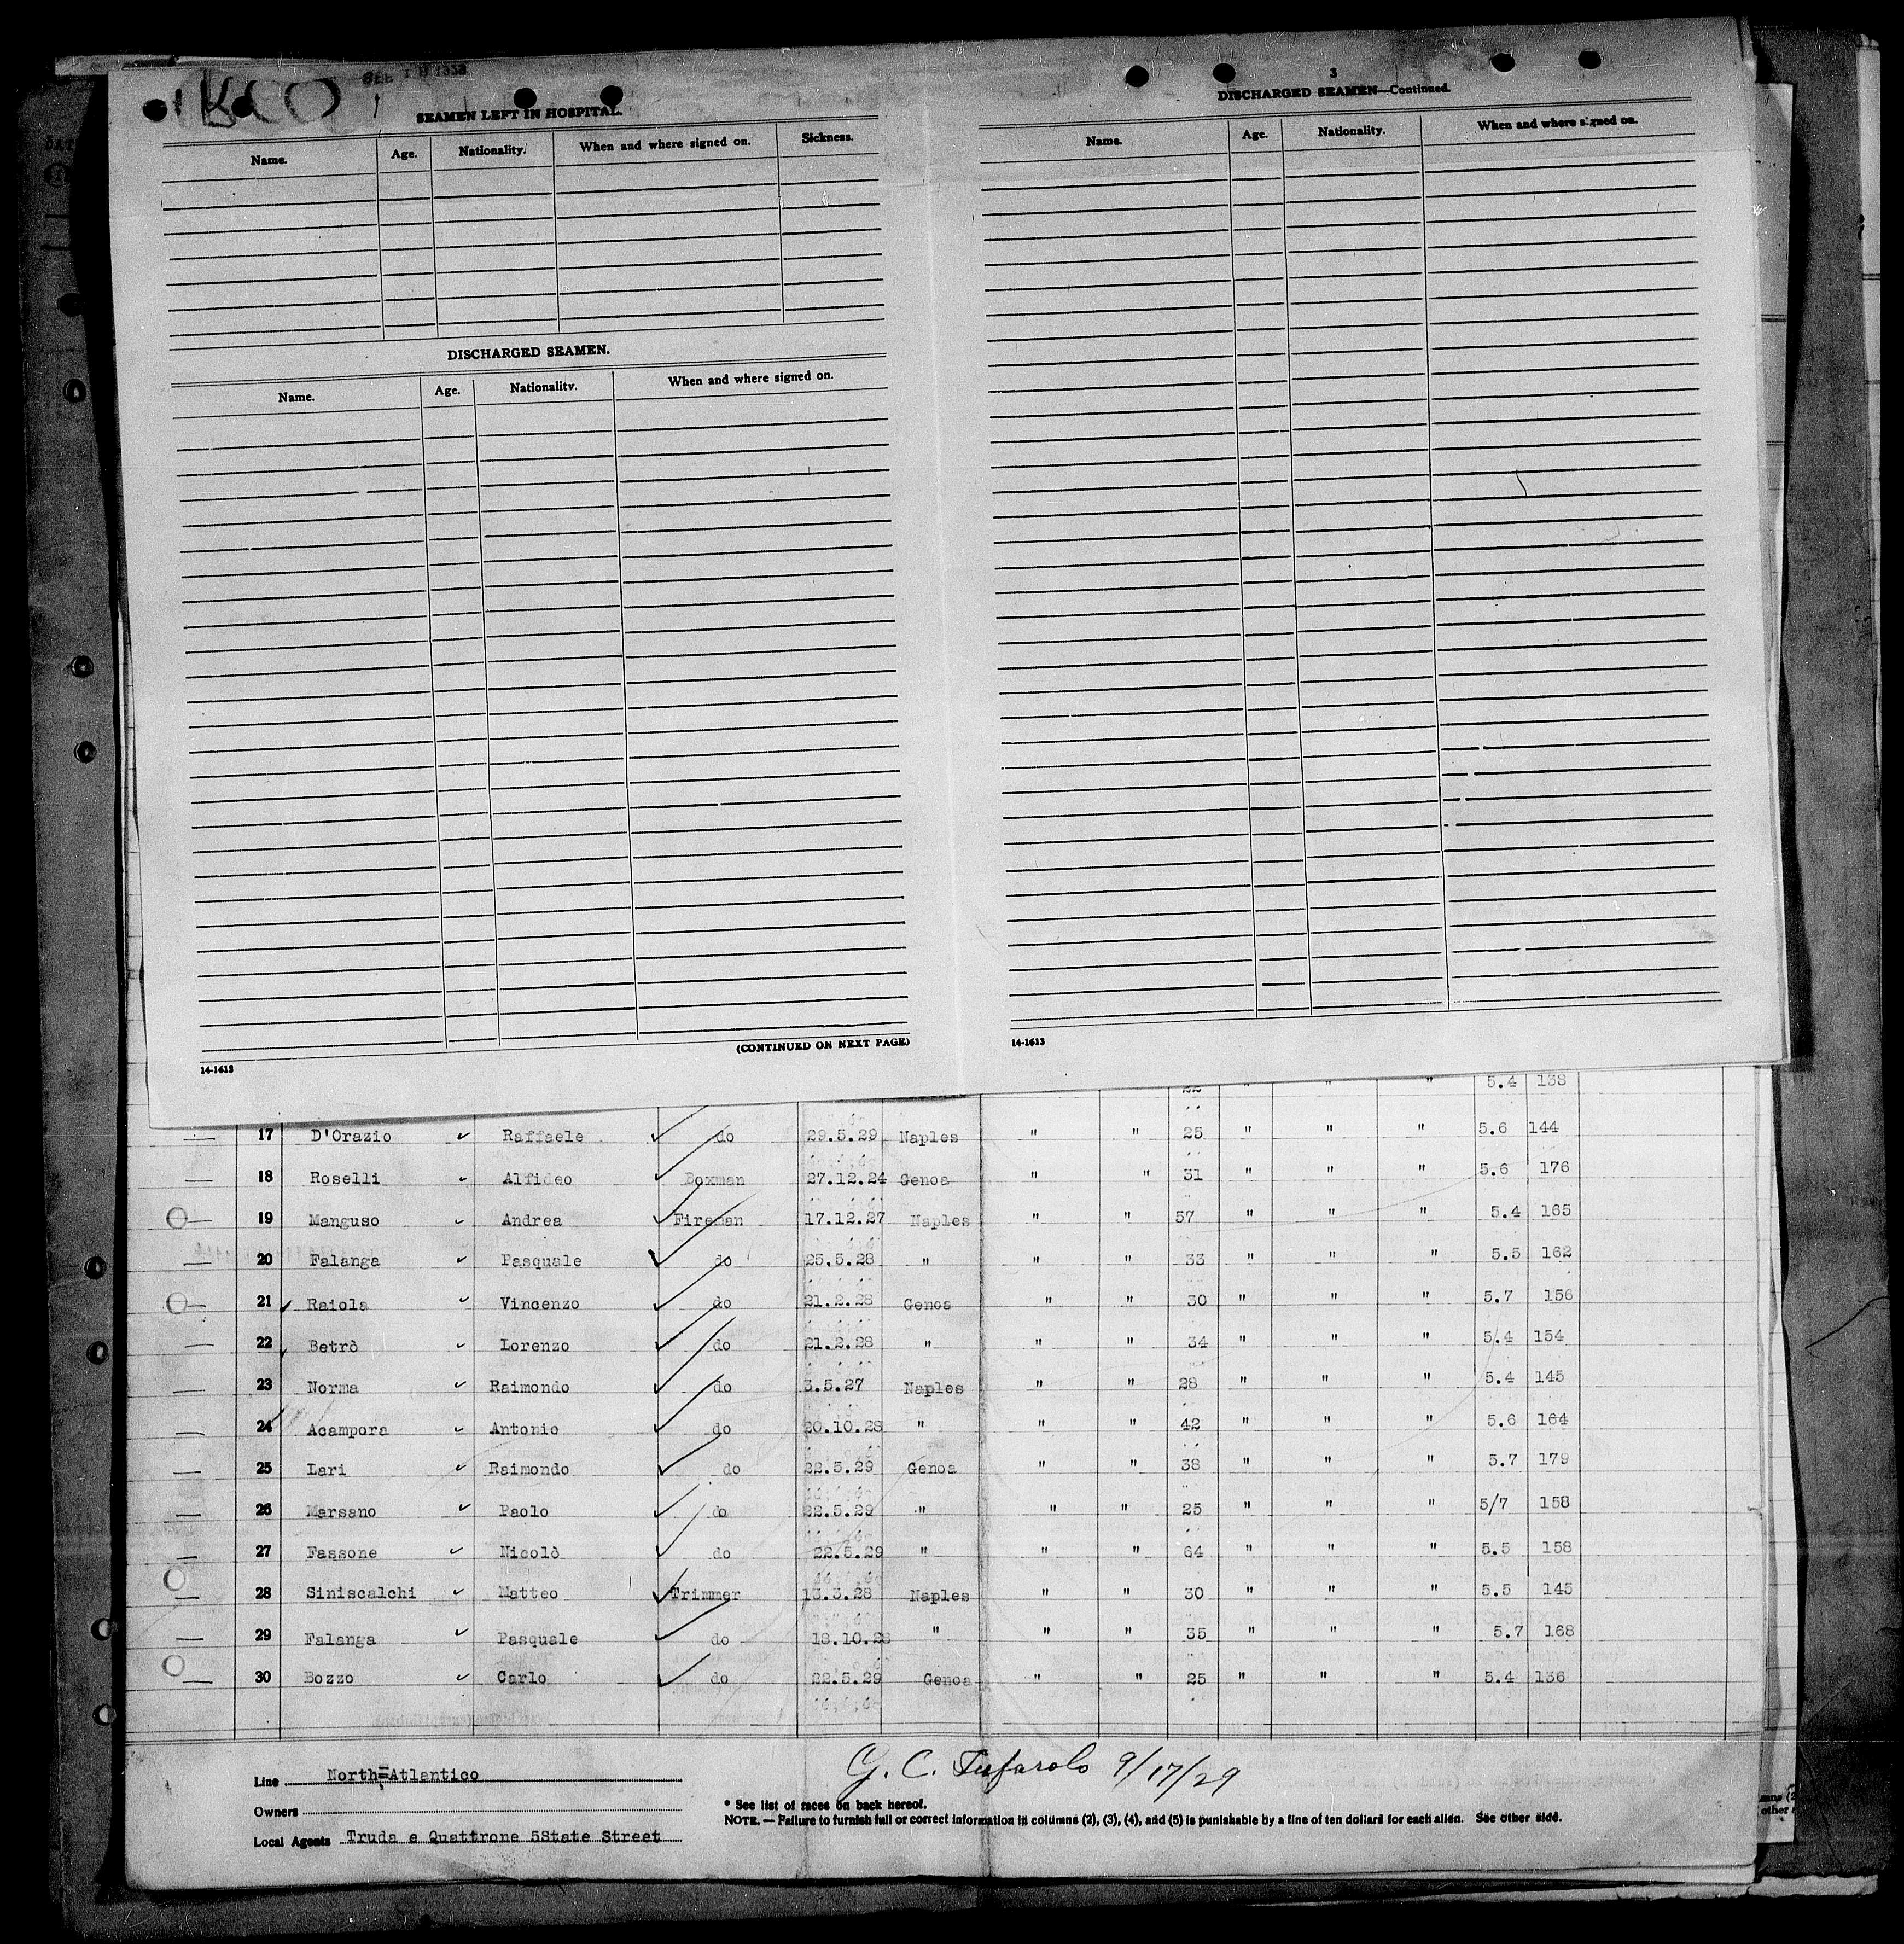 SEAMEN LEFT IN HOSPITAL.
Name. Age. Nationality. When and where signed on. Sickness.
DISCHARGED SEAMEN.
Name. Age. Nationality. When and where signed on.
(CONTINUED ON NEXT PAGE)
14-1613
3
DISCHARGED SEAMEN—Continued.
Name. Age. Nationality. When and where signed on.
14-1613
" " " 5.4 138
17 D'Orazio Raffaele do 29.5.29 Naples " " 25 " " " 5.6 144
18 Roselli Alfideo Doxman 27.12.24 Genoa " " 31 " " " 5.6 176
19 Manguso Andrea Fireman 17.12.27 Naples " " 57 " " " 5.4 165
20 Falanga Pasquale do 25.5.28 " " " 33 " " " 5.5 162
21 Raiola Vincenzo do 21.2.28 Genoa " " 30 " " " 5.7 156
22 Betrò Lorenzo do 21.2.28 " " " 34 " " " 5/4 154
23 Norma Raimondo do 3.5.27 Naples " " 28 " " " 5.4 145
24 Acampora Antonio do 20.10.28 " " " 42 " " " 5.6 164
25 Lari Raimondo do 22.5.29 Genoa " " 38 " " " 5.7 179
26 Marsano Paolo do 22.5.29 " " " 25 " " " 5/7 158
27 Fassone Nicolò do 22.5.29 " " " 64 " " " 5.5 158
28 Siniscalchi Matteo Trimmer 13.3.28 Naples " " 30 " " " 5.5 145
29 Falanga Pasquale do 18.10.28 " " " 35 " " " 5.7 168
30 Bozzo Carlo do 22.5.29 Genoa " " 25 " " " 5.4 136
Line North=Atlantico
G. C. Tufarolo 9/17/29
Owners
* See list of races on back hereof.
NOTE.—Failure to furnish full or correct information in columns (2), (3), (4), and (5) is punishable by a fine of ten dollars for each alien. See other side.
Local Agents Truda e Quattrone 5State Street